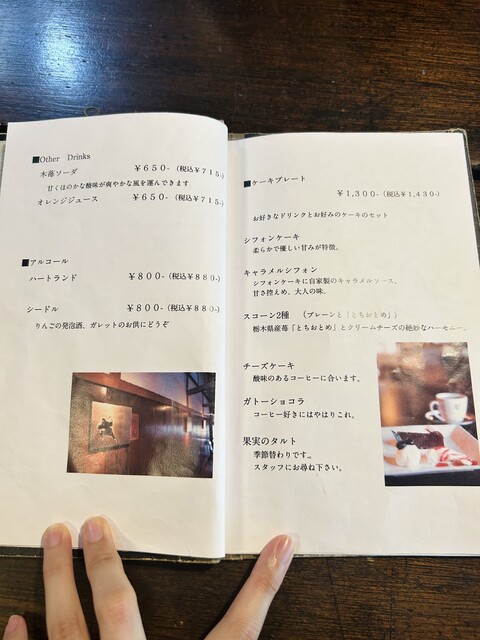 ■Other Drinks
木苺ソーダ ￥650-（税込￥715-）
甘くほのかな酸味が爽やかな風を運んできます
オレンジジュース ￥650-（税込￥715-）
■アルコール
ハートランド ￥800-（税込￥880-）
シードル ￥800-（税込￥880-）
りんごの発泡酒、ガレットのお供にどうぞ
■ケーキプレート
￥1,300-（税込￥1,430-）
お好きなドリンクとお好みのケーキのセット
シフォンケーキ
柔らかで優しい甘みが特徴。
キャラメルシフォン
シフォンケーキに自家製のキャラメルソース。
甘さ控えめ、大人の味。
スコーン2種 （プレーンと「とちおとめ」）
栃木県産苺「とちおとめ」とクリームチーズの絶妙なハーモニー。
チーズケーキ
酸味のあるコーヒーに合います。
ガトーショコラ
コーヒー好きにはやはりこれ。
果実のタルト
季節替わりです。
スタッフにお尋ね下さい。